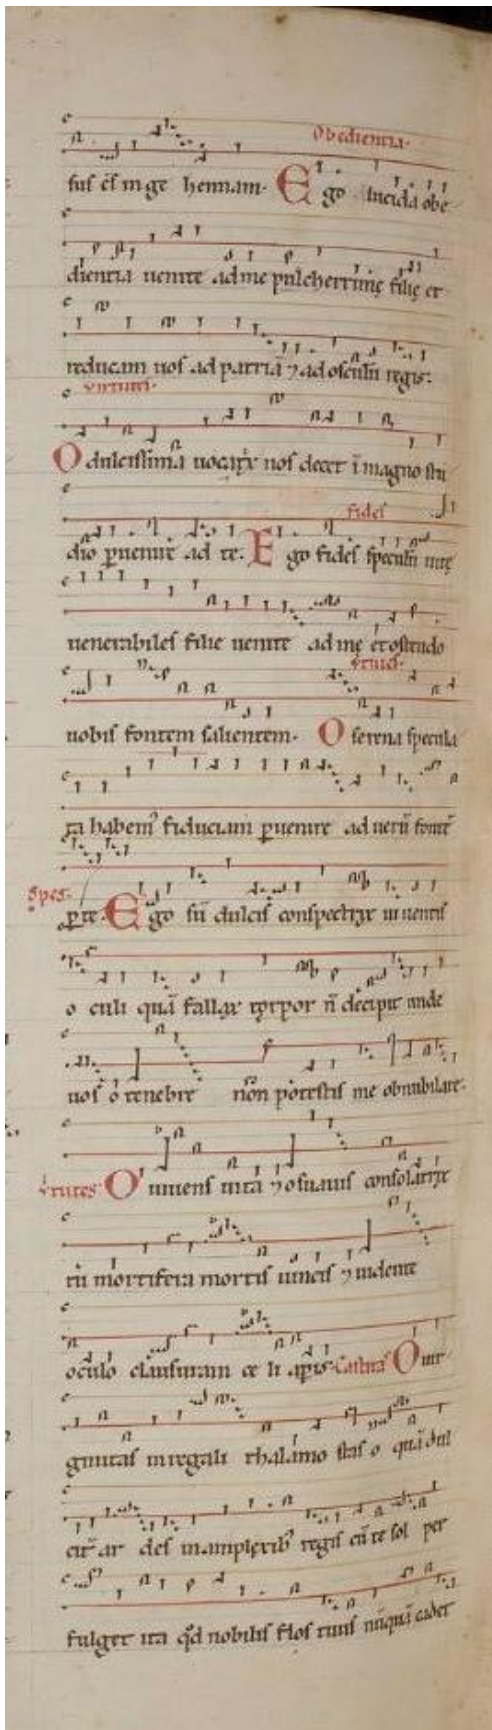 Obedientia.
sus es in ge hennam. Ego lucida obe
dientia uenite ad me pulcherrimę filię et
reducam uos ad patriā ⁊ ad osculū regis.
Virtutes.
O dulcissima uocatrix nos decet ī magno stu
Fides
dio ꝑuenire ad te. Ego fides speculū uitę
uenerabiles filie uenite ad me et ostendo
uobis fontem salientem. O serena specula
ta habem᾽ fiduciam ꝑuenire ad uerū fontē
Spes.
ꝑ te. Ego sū dulcis conspectrix uiuentis
oculi quā fallax torpor n̄ decipit unde
uos o tenebre non potestis me obnubilare.
O uiuens uita ⁊ o suauis consolatrix
tu mortifera mortis uincis ⁊ uidente
oculo clausuram ce li aꝑis. Castitas O uir
ginitas in regali thalamo stas o quā dul
citer ar des in amplexib᾽ regis cū te sol per
fulget ita qd nobilis flos tuus nūquā cadet